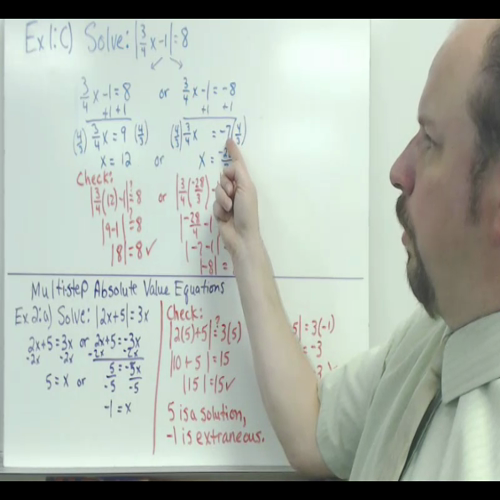 Ex 1: c) Solve: |3/4 x - 1| = 8
3/4 x - 1 = 8 or 3/4 x - 1 = -8
+1 +1 +1 +1
(4/3) 3/4 x = 9 (4/3) (4/3) 3/4 x = -7 (4/3)
x = 12 or x = -28
Check:
|3/4 (12) - 1| ?= 8 or |3/4 (-28/3) -
|9 - 1| ?= 8 |-28/4 - 1
|8| = 8 ✓ |-7 - 1
|-8| =
Multistep Absolute Value Equations
Ex 2: a) Solve: |2x+5| = 3x
2x+5 = 3x or 2x+5 = -3x
-2x -2x -2x -2x
5 = x or 5/-5 = -5x/-5
-1 = x
Check:
|2(5)+5| ?= 3(5)
|10 + 5| = 15
|15| = 15 ✓
5 is a solution,
-1 is extraneous.
5| = 3(-1)
= -3